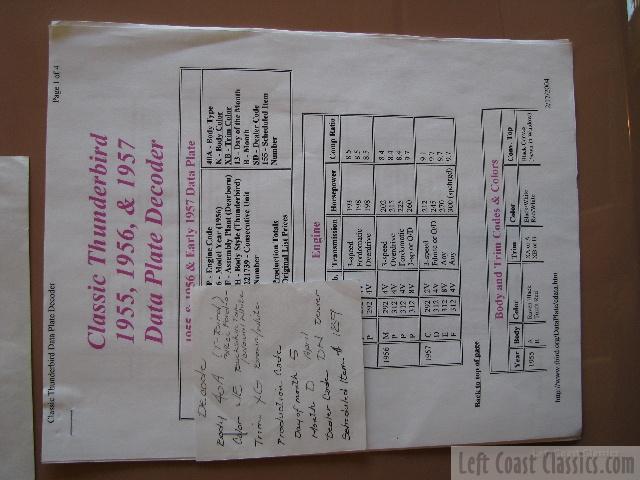 Classic Thunderbird Data Plate Decoder
Page 1 of 4
Classic Thunderbird
1955, 1956, & 1957
Data Plate Decoder
1955 & 1956 & Early 1957 Data Plate
P - Engine Code
6 - Model Year (1956)
F - Assembly Plant (Dearborn)
H - Body Style (Thunderbird)
321739 - Consecutive Unit
Number
40A - Body Type
K - Body Color
XB - Trim Color
13 - Day of the Month
R - Month
SD - Dealer Code
155 - Scheduled Item
Number
Production Totals
Original List Prices
Engine
Transmission Horsepower Comp Ratio
3-speed 193 8.5
Fordomatic 198 8.5
Overdrive 198 8.5
1956 M 292 4V 3-speed 202 8.4
P 312 4V Overdrive 215 8.4
P 312 4V Fordomatic 225
312 8V 3-sp or O/D 260
1957 C 292 2V 3-speed 212 9.1
D 312 4V Fomic or O/D 245 9.7
E 312 8V Any 270 9.7
F 312 4V Any 300 9.7
Back to top of page
Body and Trim Codes & Colors
Year Body Color Trim Color Conv. Top
1955 A Raven Black XA or A Black/White
B Torch Red XB or B Red/White
2/12/2004
Decode
Body 40A
Color
Trim XG Brown/White
Production Code
Day of month 5
Month D April
Dealer Code DN Denver
Scheduled Item # 1259
Left Coast Classics.com